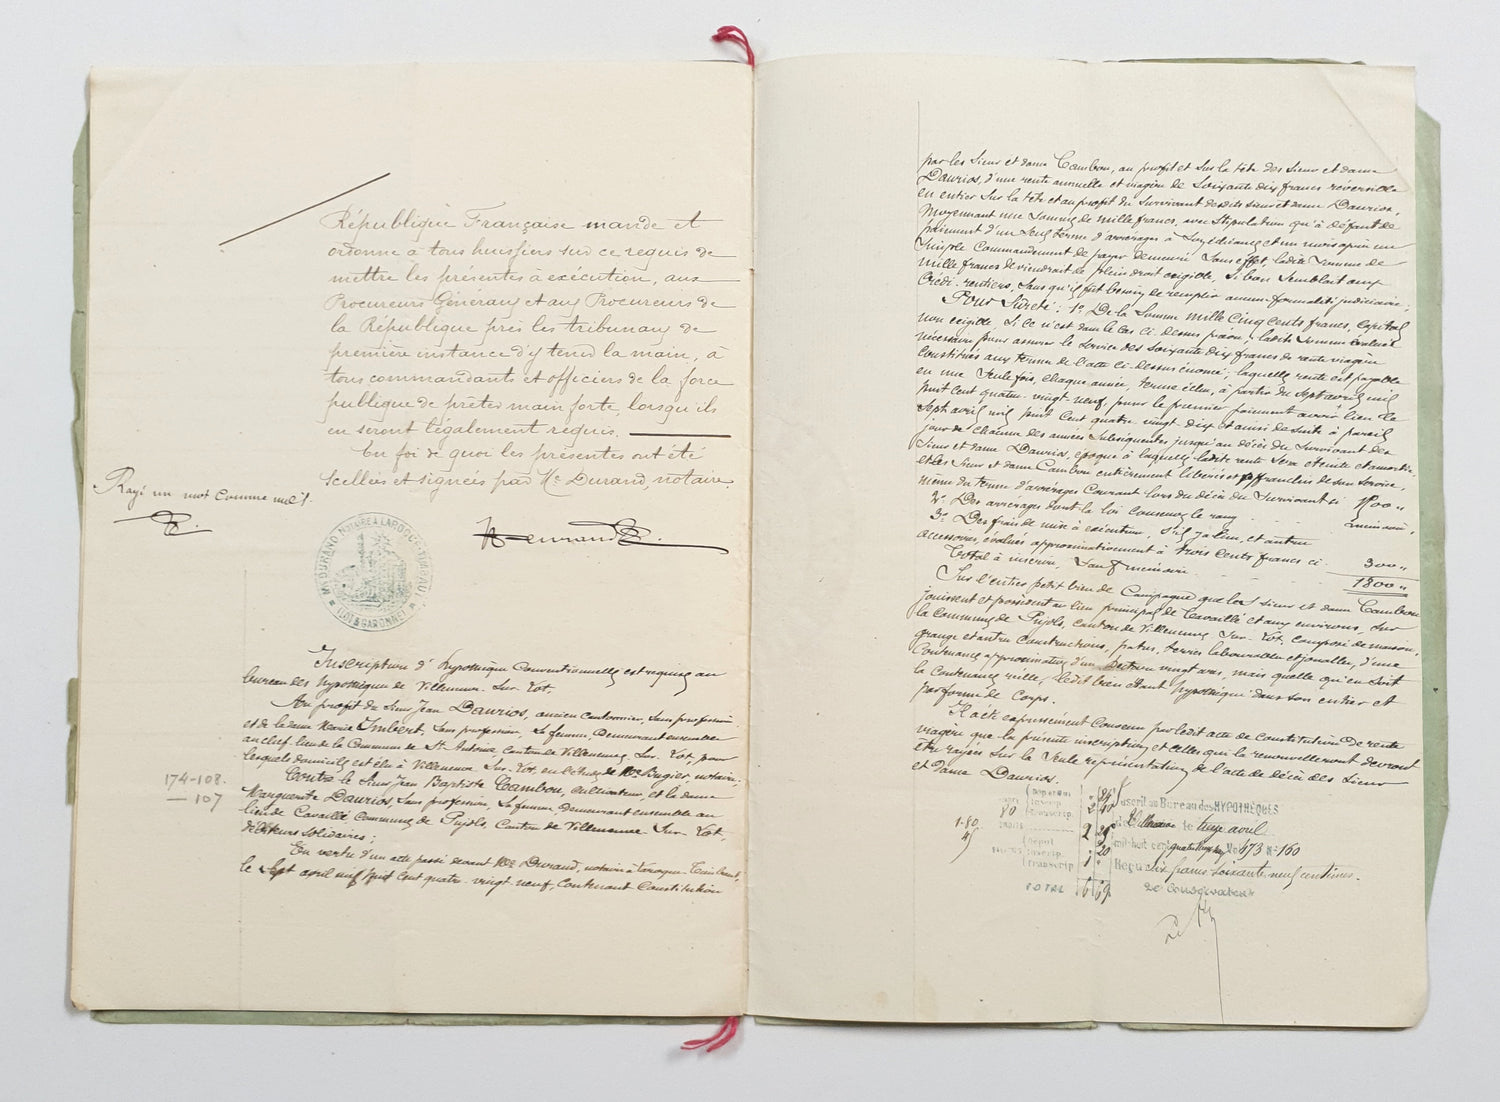 République Française mande et
ordonne à tous huissiers sur ce requis de
mettre les présentes à exécution, aux
Procureurs Généraux et aux Procureurs de
la République près les tribunaux de
première instance d'y tenir la main, à
tous commandants et officiers de la force
publique de prêter main forte, lorsqu'ils
en seront légalement requis.
En foi de quoi les présentes ont été
scellées et signées par Me Durand, notaire
Rayé un mot comme nul.
Durand
Me DURAND, NOTAIRE À LAROQUE-TIMBAUT
LOT & GARONNE
Inscription d'hypothèque Conventionnelle est requise au
bureau des hypothèques de Villeneuve-Sur-Lot.
Au profit du Sieur Jean Daurios, ancien cantonnier, Sans profession
et de la dame Marie Imbert, Sans profession, Sa femme, Demeurant ensemble
au chef-lieu de la Commune de St Antoine Canton de Villeneuve-Sur-Lot, pour
lesquels domicile est élu à Villeneuve-Sur-Lot, en l'étude de Me Bugier notaire,
Contre le Sieur Jean Baptiste Cambou, cultivateur, et la dame
174-108.
— 107
Marguerite Daurios, Sans profession, Sa femme, demeurant ensemble au
lieu de Cavaillé Commune de Pujols, Canton de Villeneuve-Sur-Lot,
débiteurs solidaires;
En vertu d'un acte passé devant Me Durand, notaire à Laroque-Timbaut,
le Sept avril mil huit cent quatre-vingt-neuf, Contenant Constitution
par les Sieur et dame Cambou, au profit et sur la tête des Sieur et dame
Daurios, d'une rente annuelle et viagère de Soixante dix francs réversible
en entier sur la tête et au profit du Survivant desdits sieur et dame Daurios,
Moyennant une Somme de mille francs, avec Stipulation qu'à défaut de
paiement d'un Seul terme d'arrérages à Son échéance et un mois après un
Simple Commandement de payer demeuré Sans effet, ladite Somme de
Mille francs deviendrait de plein droit exigible, Si bon Semblait aux
Crédi-rentiers, Sans qu'il fût besoin de remplir aucune formalité judiciaire.
Pour Sûreté: 1° De la Somme mille Cinq Cents francs, Capital
non exigible Si ce n'est dans le Cas Ci-dessus prévu, ladite Somme évaluée
nécessaire pour assurer le Service des Soixante dix francs de rente viagère
Constitués aux termes de l'acte Ci-dessus énoncé; laquelle rente est payable
en une Seule fois, chaque année, terme échu, à partir du Sept avril mil
huit Cent quatre-vingt-neuf, pour le premier paiement avoir lieu le
Sept avril mil huit Cent quatre-vingt-dix et ainsi de suite à pareil
jour de chacune des années Subséquentes jusqu'au décès du Survivant des
Sieur et dame Daurios, époque à laquelle ladite rente Sera éteinte et amortie
et les Sieur et dame Cambou entièrement libérés et affranchis de son Service,
même du terme d'arrérages Courant lors du décès du Survivant ci 1500 "
2° Des arrérages dont la loi Conserve le rang mémoire.
3° Des frais de mise à exécution, S'il y a lieu, et autres
accessoires, évalués approximativement à trois Cents francs ci 300 "
Total à inscrire, Sauf mémoire 1800 "
Sur l'entier petit bien de Campagne que les Sieur et dame Cambou
jouissent et possèdent au lieu principal de Cavaillé et aux environs, Sur
la Commune de Pujols, Canton de Villeneuve-Sur-Lot, Composé de maison,
grange et autres Constructions, patus, terres labourables et joualles, d'une
Contenance approximative d'un hectare vingt ares, mais quelle qu'en Soit
la Contenance réelle, ledit bien étant hypothéqué dans son entier et
par forme de Corps.
Il a été expressément Convenu par ledit acte de Constitution de rente
viagère que la présente inscription et celles qui la renouvelleront devront
être rayées Sur la Seule représentation de l'acte de décès des Sieur
et Dame Daurios.
Inscrit au Bureau des HYPOTHÈQUES
de Villeneuve le treize avril
mil huit cent quatre vingt neuf Vol 673 N° 160
Reçu dix francs soixante neuf centimes.
Le Conservateur
1.80
TOTAL